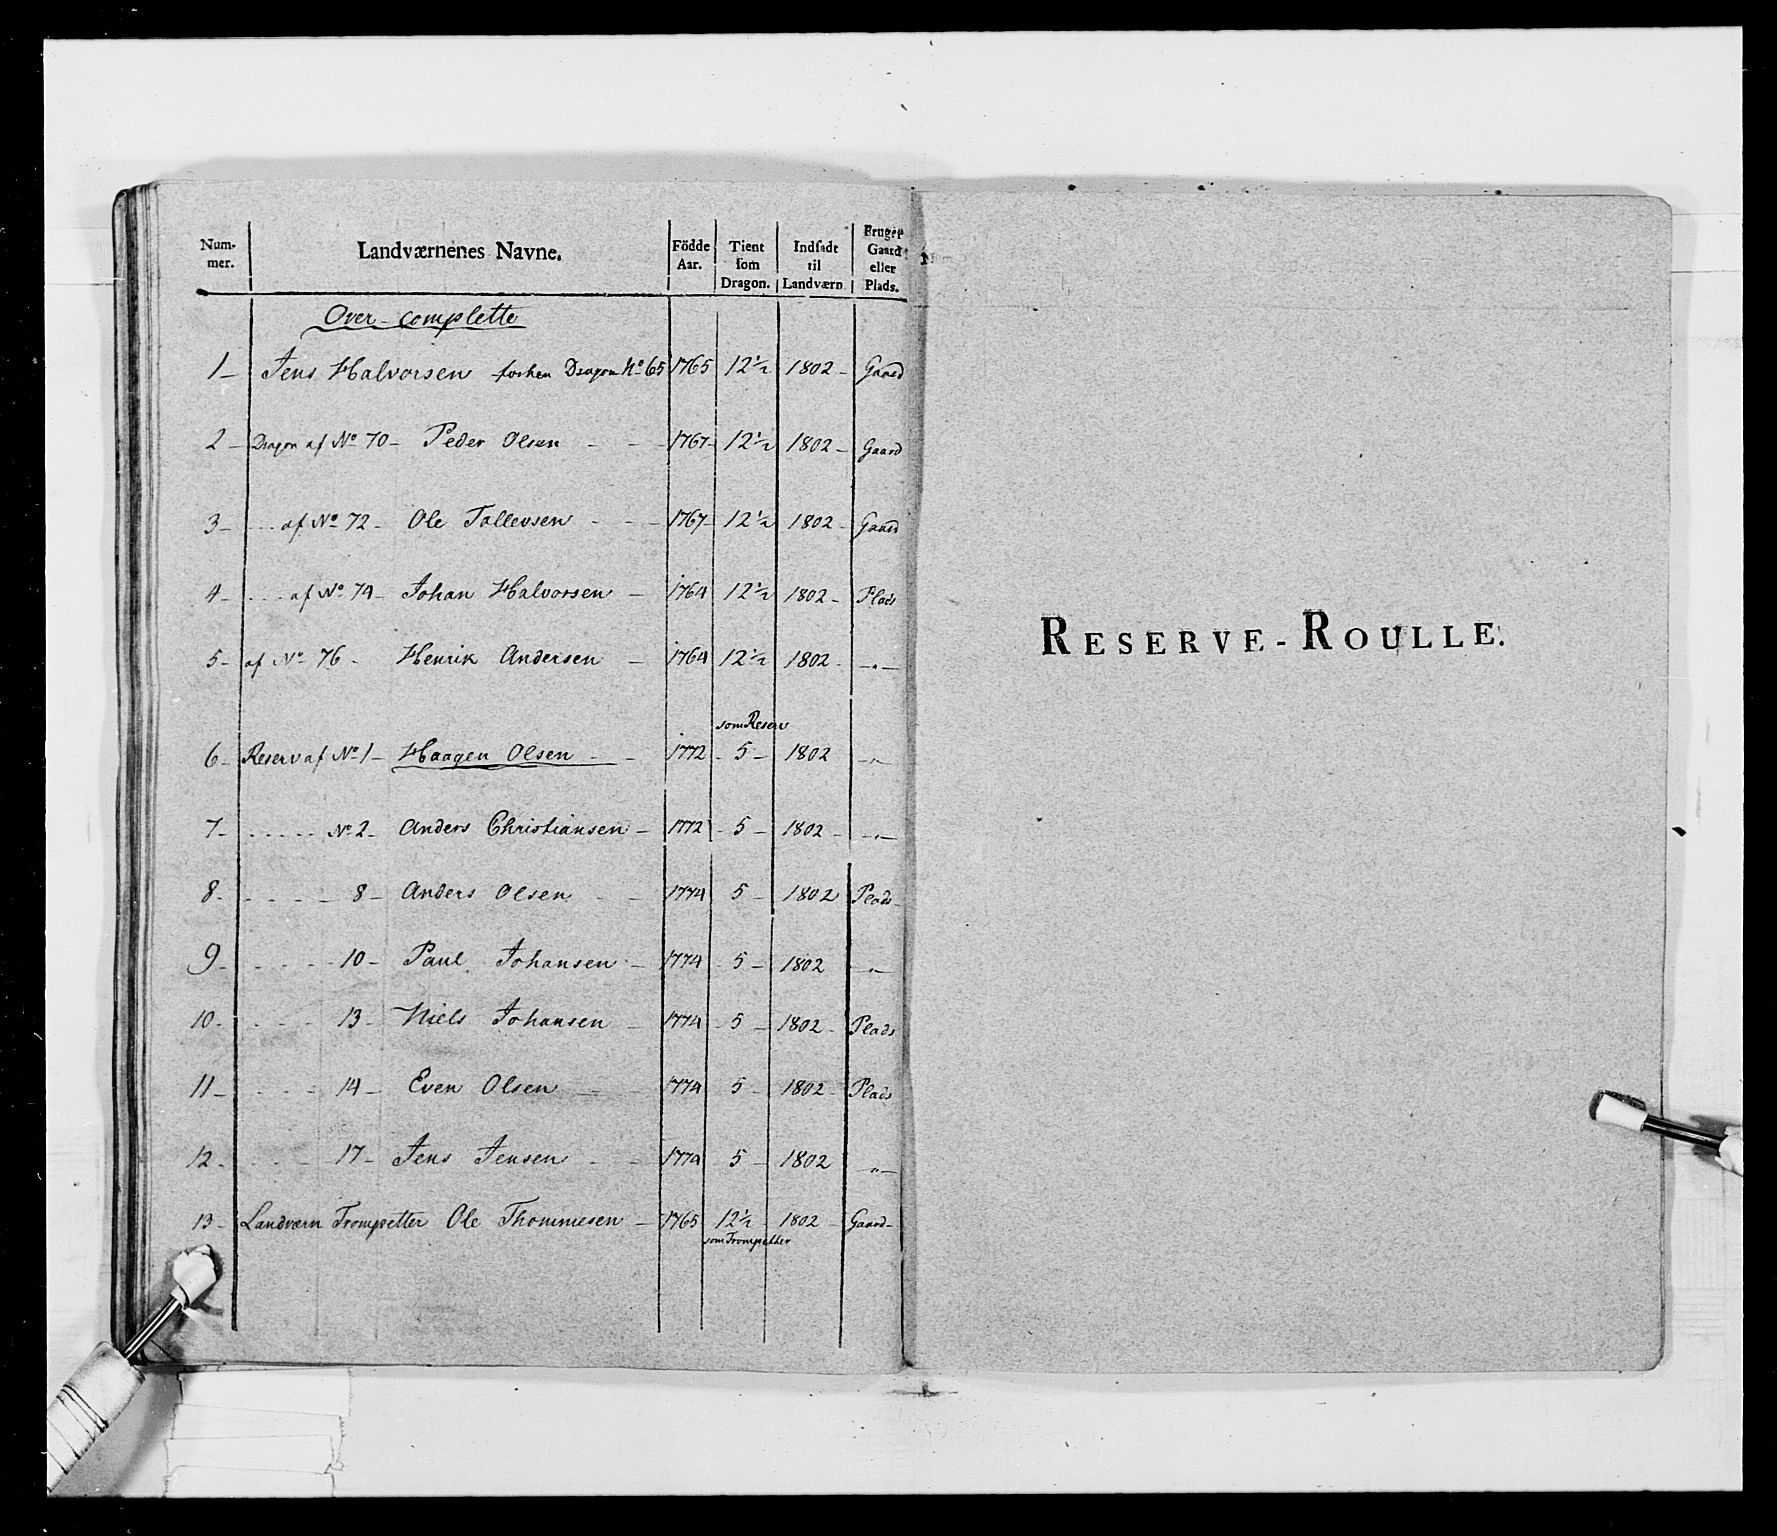 Num-mer. Landværnenes Navne. Födde Aar. Tient som Dragon. Indsadt til Landværn Bruger Gaard eller Plads.
Over-complette
1 – Jens Halvorsen forhen Dragon No 65 1765 12½ 1802 – Gaard
2 – Dragon af No 70 – Peder Olsen – – 1767 – 12½ 1802 – Gaard
3 – . . . af No 72 – Ole Tollevsen – – – 1767 – 12½ 1802 – Gaard
4 – . . . af No 74 – Johan Halvorsen – 1764 12½ 1802 – Plads
5 – af No 76 – Henrik Andersen – 1764 12½ 1802 – –„–
som Reserv
6 – Reserv af No 1 – Haagen Olsen – – 1772 – 5 – 1802 –„–
7 – . . . . . No 2 – Anders Christiansen – 1772 – 5 – 1802 – –„–
8 – – – – – 8 – Anders Olsen – – 1774 5 – 1802 Plads –
9 – – – – – 10 – Paul Johansen – 1774 – 5 – 1802 –„–
10 – – – – 13 – Niels Johansen – 1774 – 5 – 1802 – Plads
11 – – – – 14 – Even Olsen – – 1774 5 – 1802 – Plads
12 – – – – 17 – Jens Jensen – – 1774 5 – 1802 „–
13 – Landværn Trompetter Ole Thommesen – 1765 12½ 1802 – Gaard –
som Trompetter
RESERVE-ROULLE.